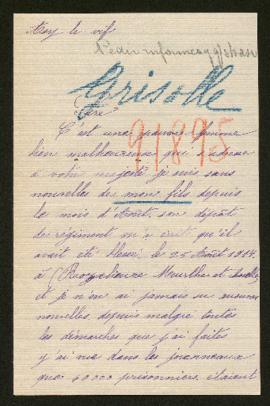 Azy le vif
Pedir informes
Grisolle
Sire
91895
C'est une pauvre femme
bien malheureuse qui
à votre majesté je suis sans
nouvelles de mon fils depuis
le mois d'Août, son dépôt
de régiment m'a écrit qu'il
avait été blessé le 25 Août 1914
à Meurthe et Moselle
et je n'ai jamais eu aucunes
nouvelles depuis malgré toutes
les démarches que j'ai faites
j'ai vue dans les journeaux
que 60000 prisonniers étaient